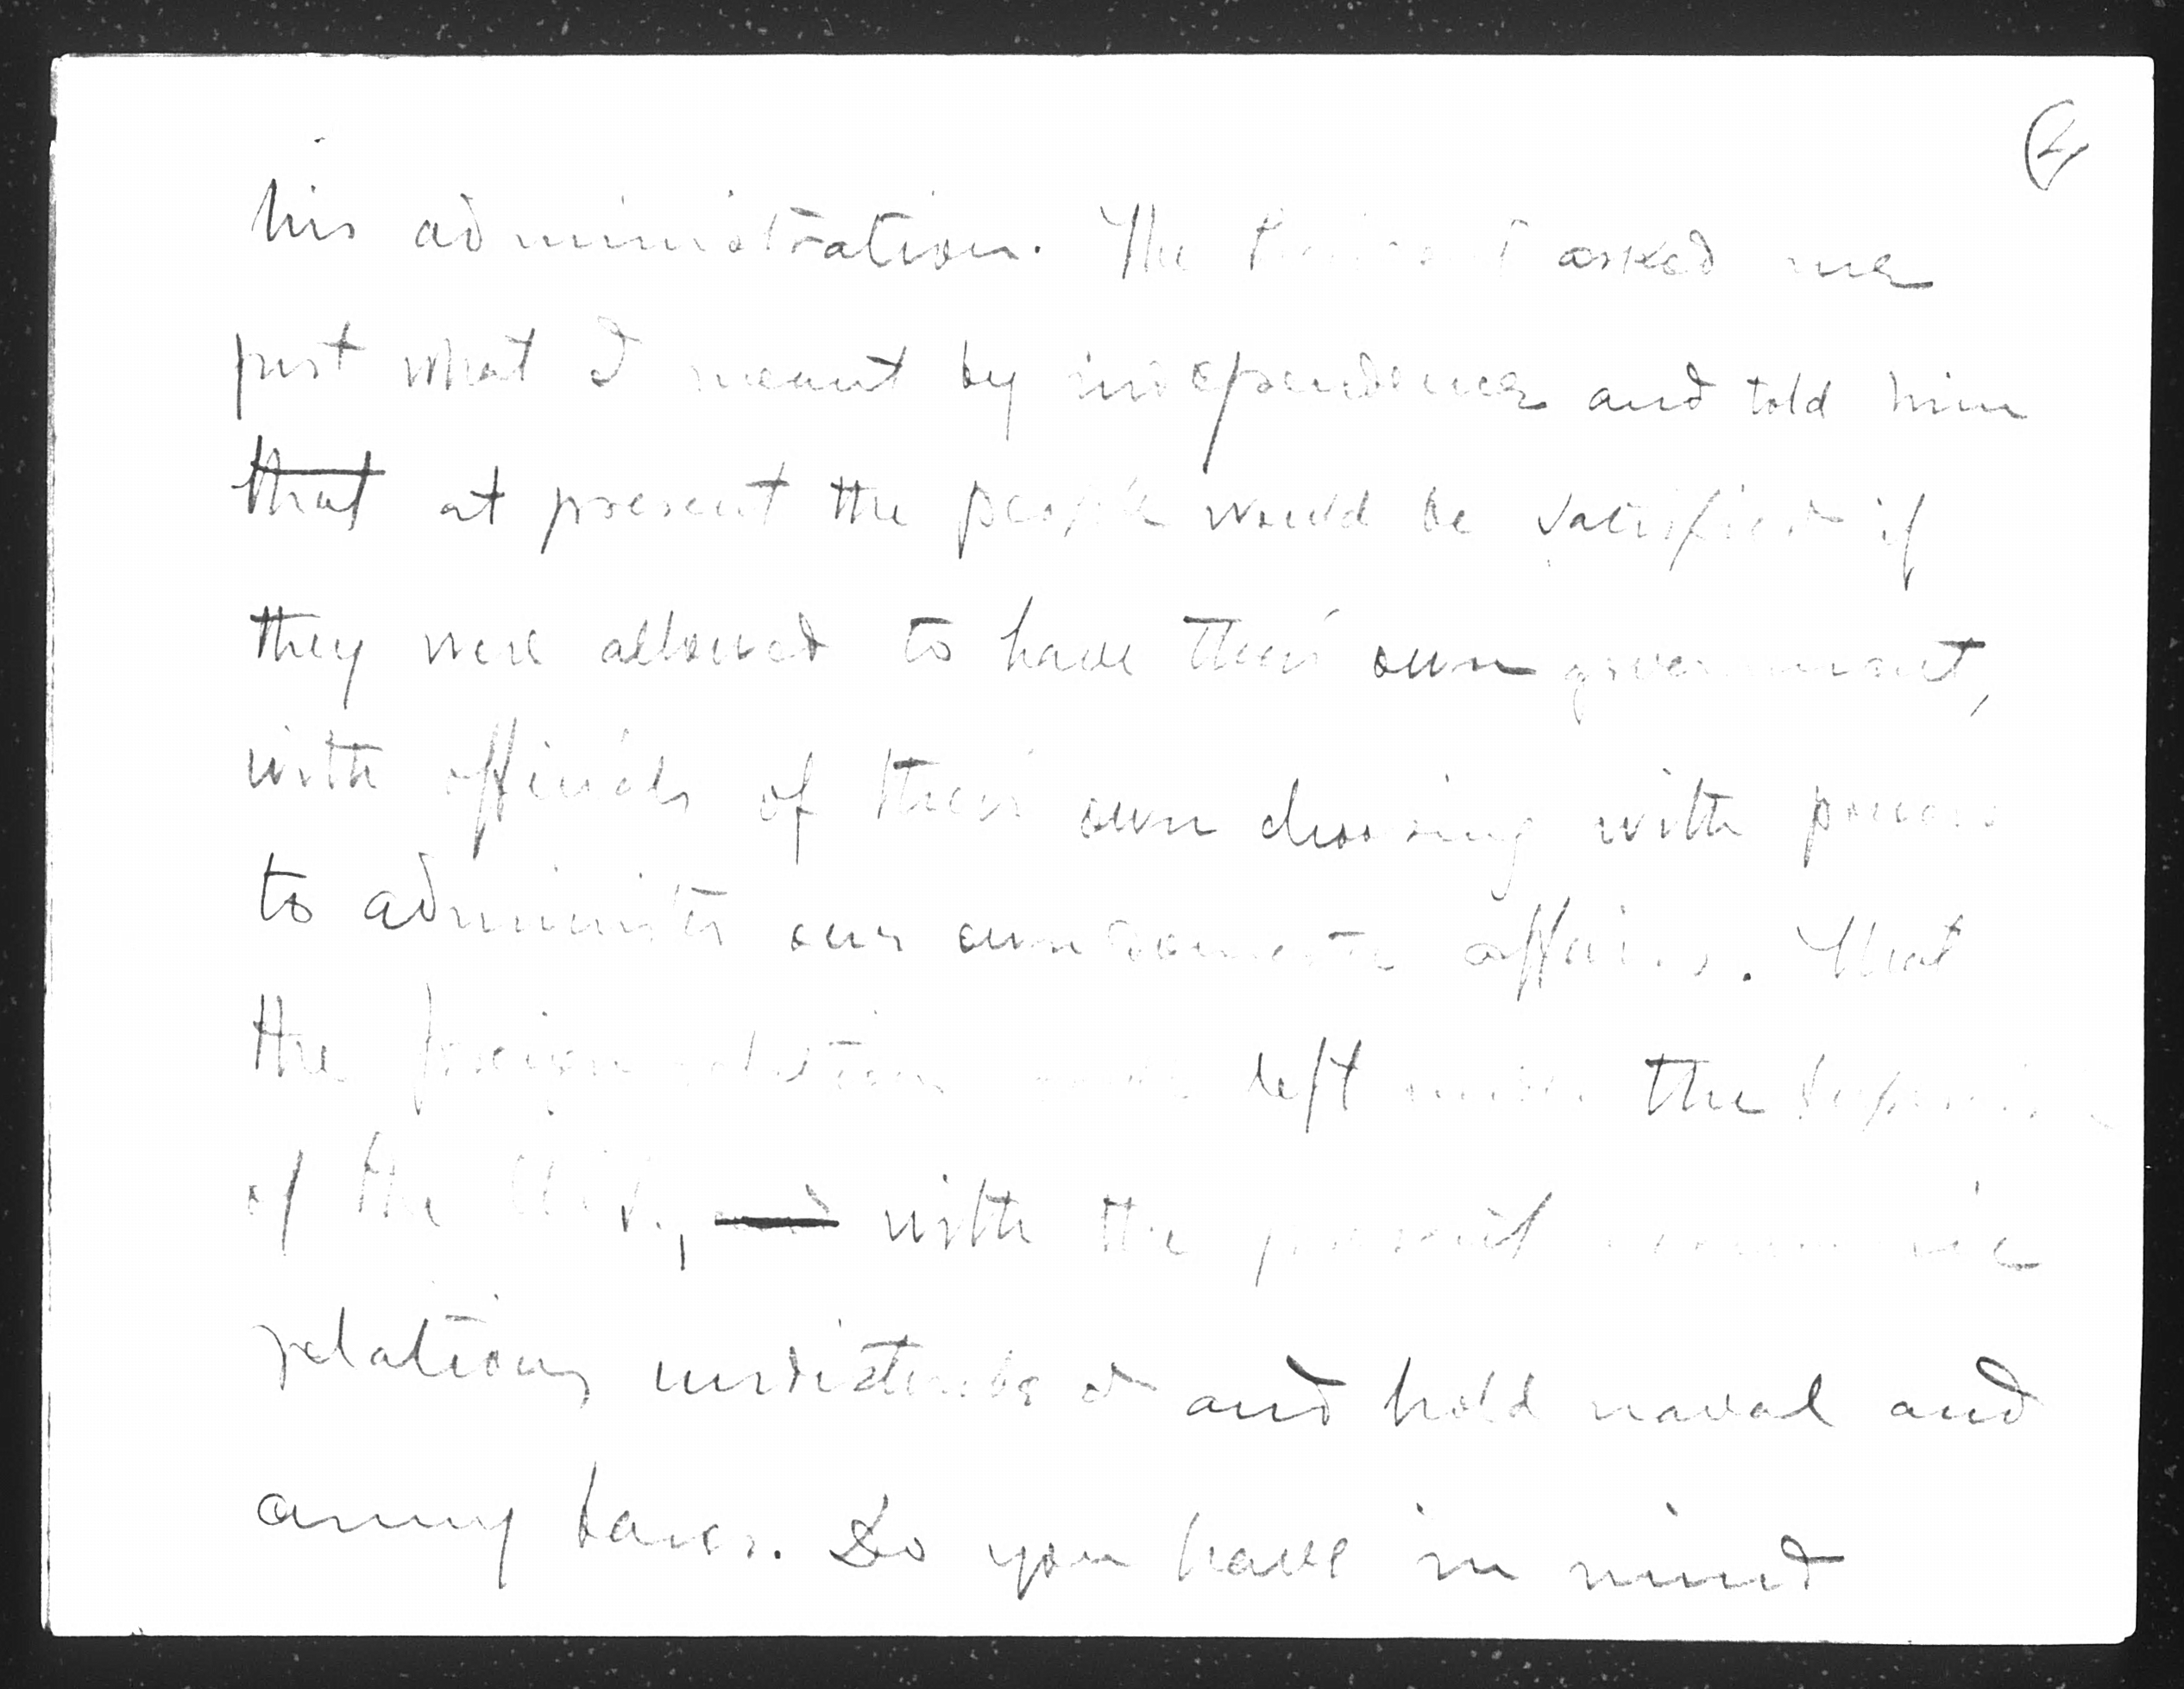 his administration. The President asked me
just what I meant by independence and told him
that at present the people would be satisfied if
they were allowed to have their own government,
with officials of their own choosing with powers
to administer our own domestic affairs. That
the foreign relations left under the
of the U.S., and with the present economic
relations undisturbed and hold naval and
army bases. Do you have in mind